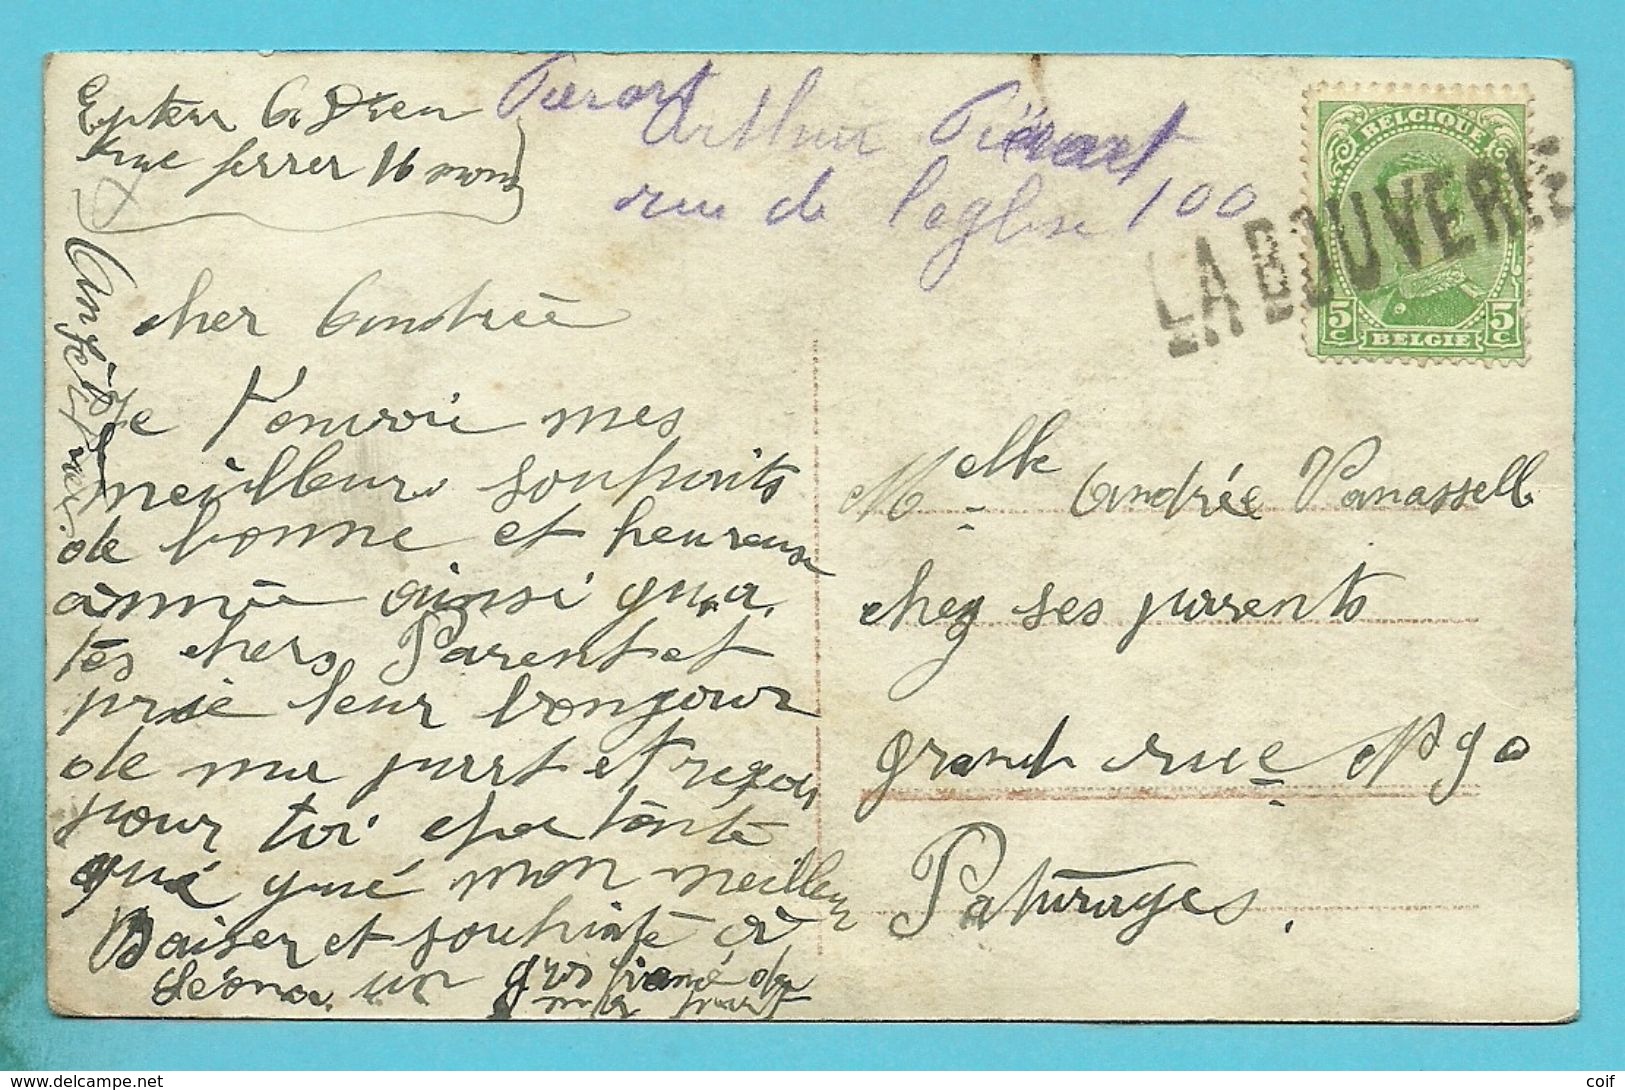 rue ferrer 16 mons
Pierart
Arthur Pierart
rue de l'eglise 100
BELGIQUE
5 c 5 c
BELGIE
LA BOUVERIE
cher Andrée
Je t'envoie mes
meilleur souhaits
de bonne et heureuse
année ainsi qu'a
tes chers Parent et
prie leur bonjour
de ma part et reçois
pour toi cher tante
qué mon meilleur
Baiser et souhaite à
Léona un gros de
ma part
Melle Andrée Vanassell
chez ses parents
grand rue No 90
Paturages.
coif
www.delcampe.net